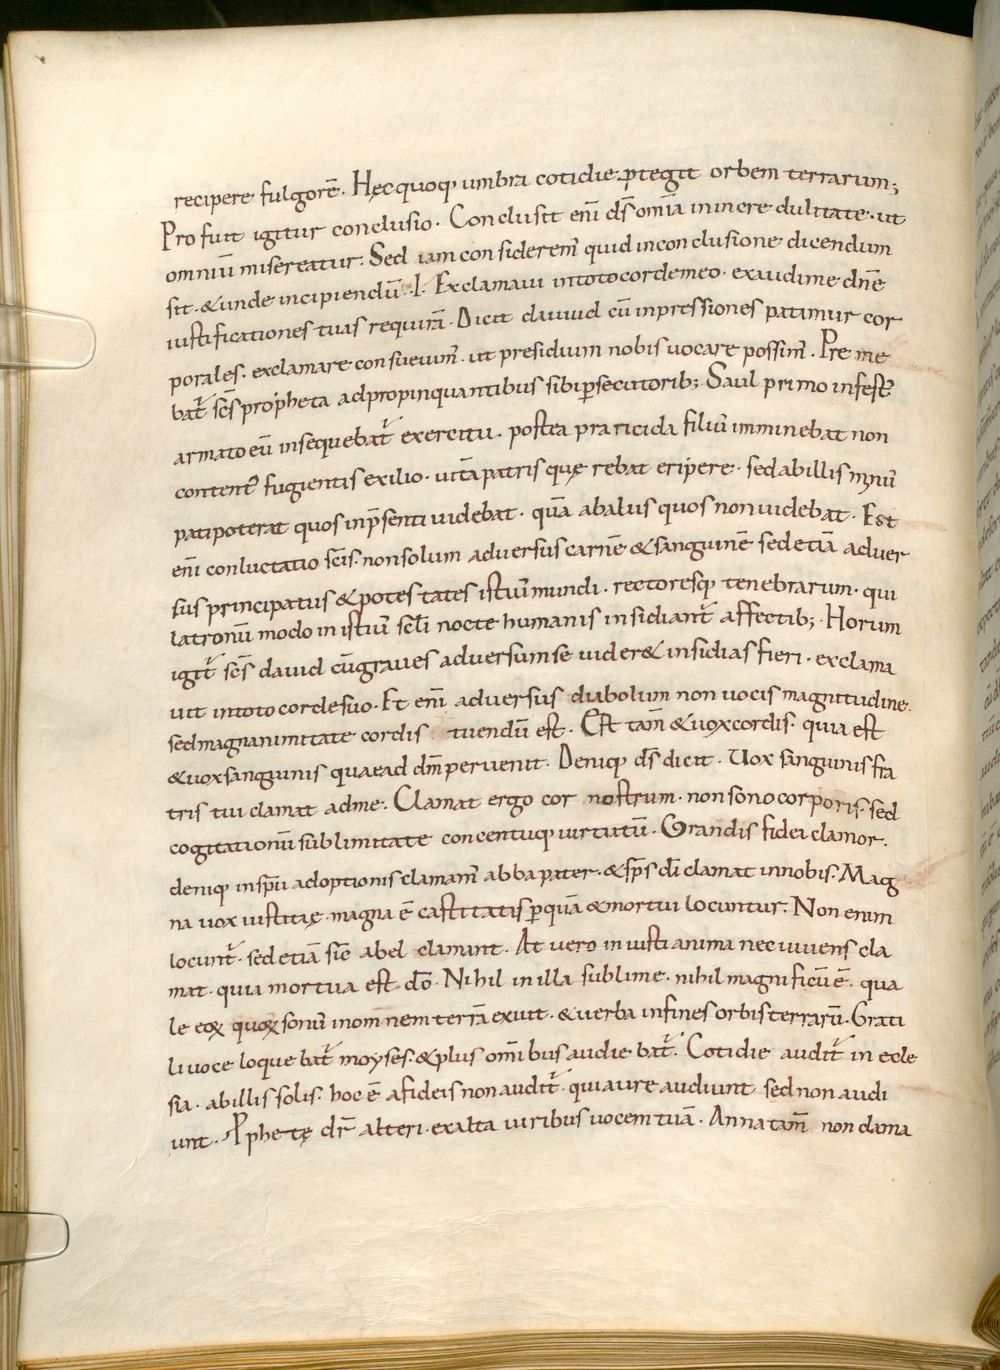 recipere fulgorē. Hęc quoq; umbra cotidie ꝓtegit orbem terrarum;
Profuit igitur conclusio. Conclusit enī ds̄ omīa in incredulitate. ut
omniū misereatur. Sed iam consideremꝰ quid in conclusione dicendum
sit. & unde incipiendū. I. Exclamaui in toto corde meo. exaudi me dn̄e
iustificationes tuas requirā. Dicit dauid cū inpressiones patimur cor
porales. exclamare consueuimꝰ. ut presidium nobis uocare possimꝰ. Preme
bat᷑ scs̄ propheta ad propinquantibus sibi ꝑsecutorib; Saul primo infestꝰ
armato eū insequebat᷑ exercitu. postea parricida filiū imminebat non
contentꝰ fugientis exilio. uitā patris quęrebat eripere. sed ab illis
pati poterat quos in p̄senti uidebat. quā ab aliis quos non uidebat. Est
enī conluctatio scīs. non solum aduersus carnē & sanguinē sed etiā aduer
sus principatus & potestates istiꝰ mundi. rectoresq; tenebrarum. qui
latronū modo in istiꝰ sc̄li nocte humanis insidiant᷑ affectib; Horum
igit᷑ scs̄ dauid cū graues aduersum se uider& insidias fieri. exclama
uit in toto corde suo. Et enī aduersus diabolum non uocis magnitudine.
sed magnanimitate cordis tuendū est. Est tam̄ & uox cordis. quia est
& uox sanguinis quae ad dm̄ peruenit. Deniq; ds̄ dicit. Uox sanguinis fra
tris tui clamat ad me. Clamat ergo cor nostrum. non sono corporis. sed
cogitationū sublimitate concentuq; uirtutū. Grandis fidei clamor.
deniq; in sp̄u adoptionis clamamꝰ abba pater. & sp̄s dī clamat in nobis. Mag
na uox iustitię. magna ē castitatis ꝑ quā & mortui locuntur. Non enim
locunt᷑. sed etiā sic̄ abel clamant. At uero iniusti anima nec uiuens cla
mat. quia mortua est dō. Nihil in illa sublime. nihil magnificū ē. qua
le eoꝝ quoꝝ sonuꝰ in omnem terrā exiuit. & uerba in fines orbis terrarū. Graci
li uoce loquebat᷑ moyses. & plus om̄ibus audiebat᷑. Cotidie audit᷑ in ecle
sia. ab illis solis. hoc ē a fideis non audit᷑. qui aure audiunt sed non audi
unt. Ꝓphetę dr̄ alteri. exalta uiribus uocem tuā. Anna tam̄ non clama